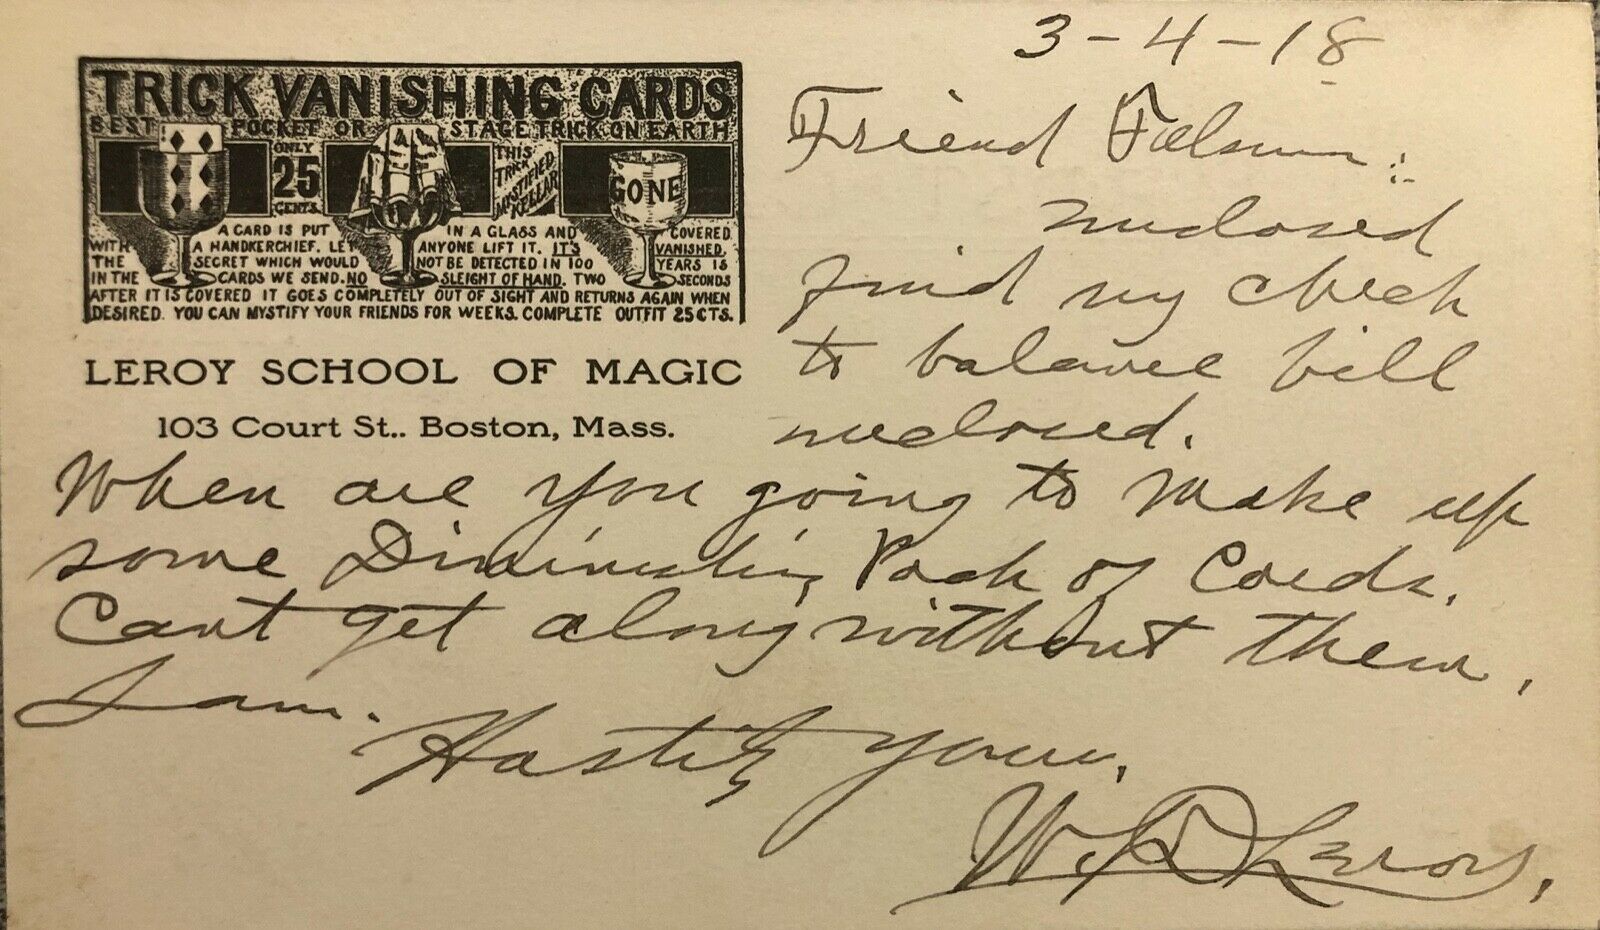 3-4-18
TRICK VANISHING CARDS
BEST POCKET OR STAGE TRICK ON EARTH
ONLY
25
CENTS.
THIS
TRICK
MYSTIFIED
KELLAR
GONE
A CARD IS PUT IN A GLASS AND COVERED
WITH A HANDKERCHIEF. LET ANYONE LIFT IT. IT'S VANISHED.
THE SECRET WHICH WOULD NOT BE DETECTED IN 100 YEARS IS
IN THE CARDS WE SEND. NO SLEIGHT OF HAND. TWO SECONDS
AFTER IT IS COVERED IT GOES COMPLETELY OUT OF SIGHT AND RETURNS AGAIN WHEN
DESIRED. YOU CAN MYSTIFY YOUR FRIENDS FOR WEEKS. COMPLETE OUTFIT 25CTS.
LEROY SCHOOL OF MAGIC
103 Court St.. Boston, Mass.
Friend
enclosed
find my check
to balance bill
enclosed.
When are you going to make up
some Diminishing Pack of Cards.
Cant get along without them,
I am.
Hastily yours,
W. D. Leroy,